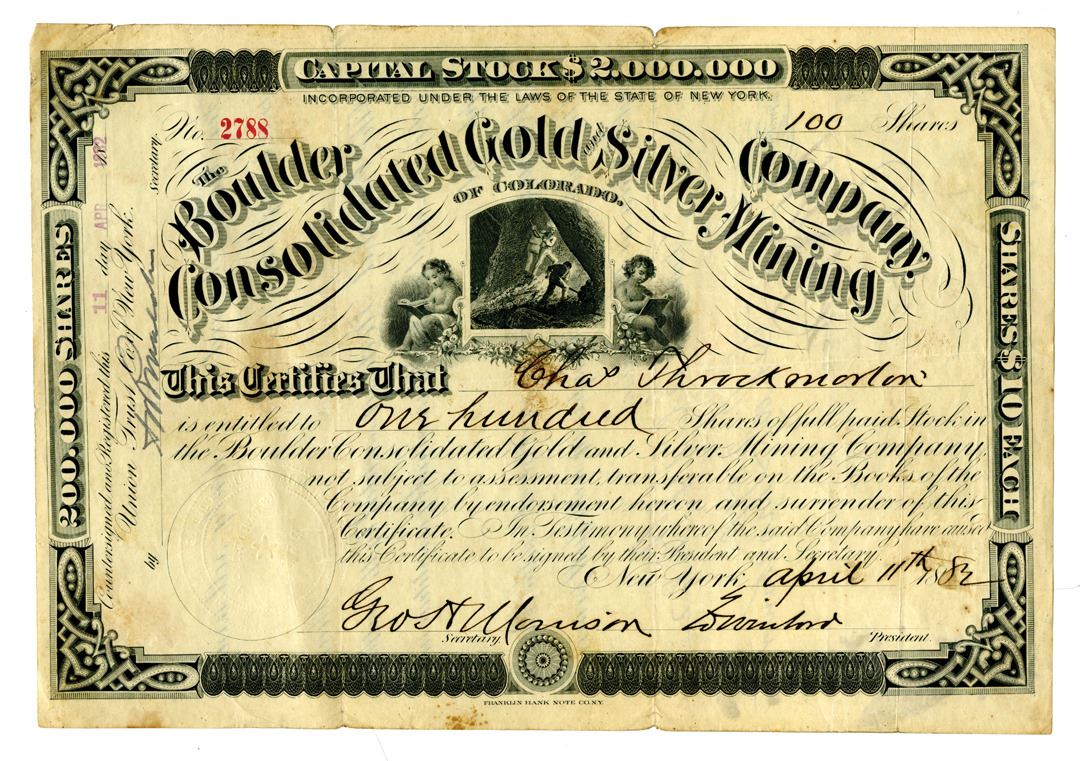 CAPITAL STOCK $ 2.000.000
INCORPORATED UNDER THE LAWS OF THE STATE OF NEW YORK.
No. 2788
100 Shares
The Boulder
Consolidated Gold and Silver Mining
Company.
OF COLORADO.
This Certifies That Chas Throckmorton
is entitled to One hundred Shares of full paid Stock in
the Boulder Consolidated Gold and Silver Mining Company,
not subject to assessment, transferable on the Books of the
Company by endorsement hereon and surrender of this
Certificate. In Testimony whereof the said Company have caused
this Certificate to be signed by their President and Secretary.
New York, april 11th 1882
Geo H Morrison
Secretary.
President.
200.000 SHARES
SHARES $ 10 EACH
Countersigned and Registered this 11 day APR 1882
Union Trust Co. of New York.
by
Secretary.
FRANKLIN BANK NOTE CO. N.Y.